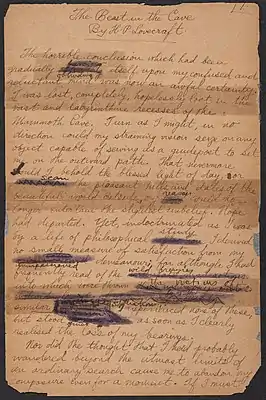 The Beast in the Cave
By H. P. Lovecraft
The horrible conclusion which had been
gradually itself upon my confused and
reluctant was now an awful certainty.
I was lost, completely, hopelessly lost in the
vast and labyrinthine recesses of the
Mammoth Cave. Turn as I might, in no
direction could my straining vision seize on any
object capable of serving as a guidepost to set
me on the outward path. That nevermore
should I behold the blessed light of day, or
scan the pleasant hills and dales of the
beautiful world outside, my reason could no
longer entertain the slightest unbelief. Hope
had departed. Yet, indoctrinated as I was
by a life of philosophical study, I derived
a small measure of satisfaction from my
demeanour; for although I had
frequently read of the wild
into which were thrown the victims of
similar experienced none of these,
but stood as soon as I clearly
realised the loss of my bearings.
Nor did the thought that I had probably
wandered beyond the utmost limits of
an ordinary search cause me to abandon my
composure even for a moment. If I must